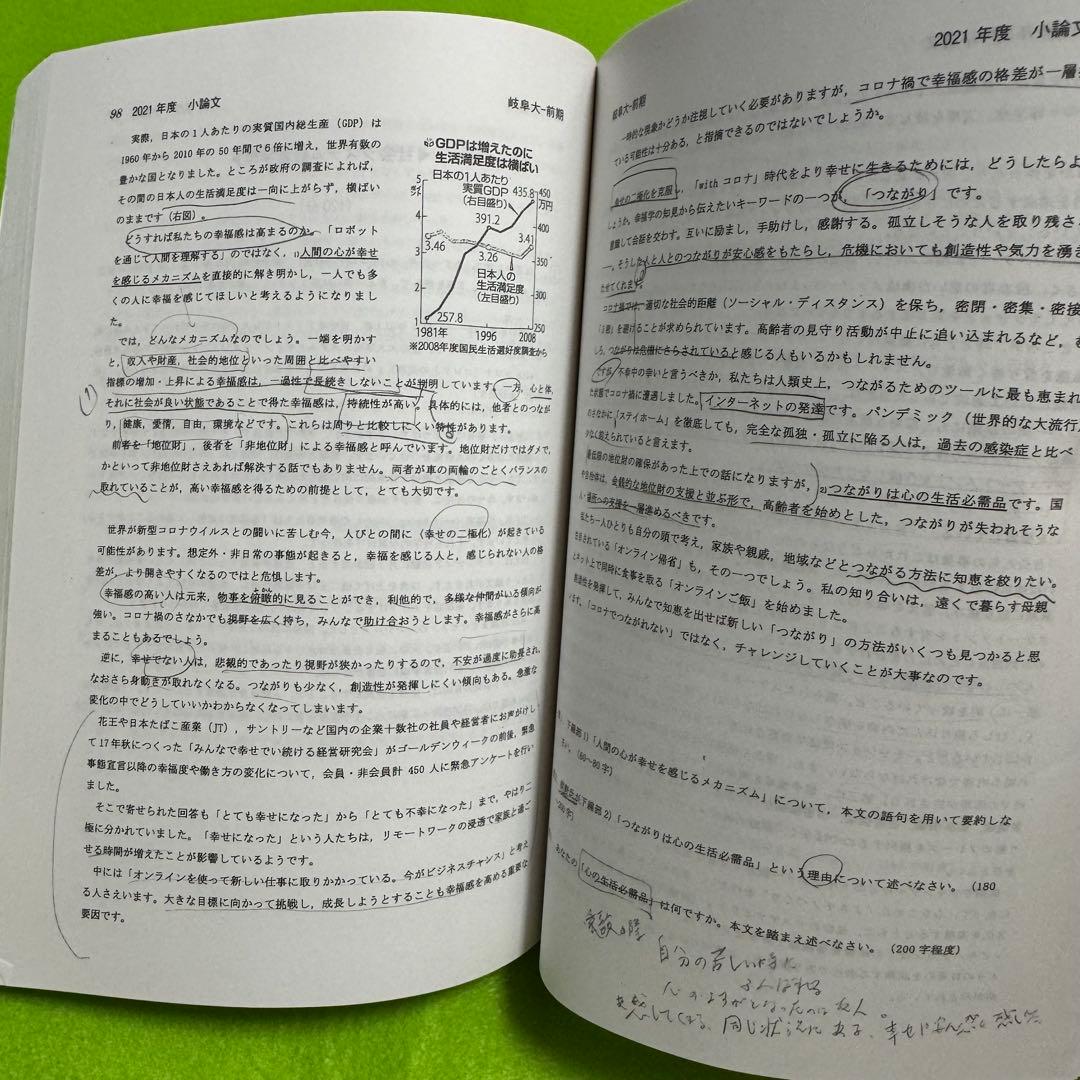 98 2021年度 小論文
岐阜大-前期
実際，日本の1人あたりの実質国内総生産（GDP）は
1960年から2010年の50年間で6倍に増え，世界有数の
豊かな国となりました。ところが政府の調査によれば，
その間の日本人の生活満足度は一向に上がらず，横ばい
のままです（右図）。
どうすれば私たちの幸福感は高まるのか。「ロボット
を通じて人間を理解する」のではなく，1)人間の心が幸せ
を感じるメカニズムを直接的に解き明かし，一人でも多
くの人に幸福を感じてほしいと考えるようになりまし
た。
では，どんなメカニズムなのでしょう。一端を明かす
と，収入や財産，社会的地位といった周囲と比べやすい
GDPは増えたのに
生活満足度は横ばい
日本の1人あたり
実質GDP
（右目盛り）
435.8
450
万円
400
350
300
250
5
4
3
2
1
391.2
3.46
3.26
3.41
日本人の
生活満足度
（左目盛り）
257.8
1981年 1996 2008
※2008年度国民生活選好度調査から
指標の増加・上昇による幸福感は，一過性で長続きしないことが判明しています。一方，心と体，
それに社会が良い状態であることで得た幸福感は，持続性が高い。具体的には，他者とのつなが
り，健康，愛情，自由，環境などです。これらは周りと比較しにくい特性があります。
前者を「地位財」，後者を「非地位財」による幸福感と呼んでいます。地位財だけではダメで，
かといって非地位財さえあれば解決する話でもありません。両者が車の両輪のごとくバランスの
取れていることが，高い幸福感を得るための前提として，とても大切です。
世界が新型コロナウイルスとの闘いに苦しむ今，人びとの間に〈幸せの二極化〉が起きている
可能性があります。想定外・非日常の事態が起きると，幸福を感じる人と，感じられない人の格
差が，より開きやすくなるのではと危惧します。
幸福感の高い人は元来，物事を俯瞰的に見ることができ，利他的で，多様な仲間がいる傾向が
強い。コロナ禍のさなかでも視野を広く持ち，みんなで助け合おうとします。幸福感がさらに高
まることもあるでしょう。
逆に，幸せでない人は，悲観的であったり視野が狭かったりするので，不安が過度に助長され，
なおさら身動きが取れなくなる。つながりも少なく，創造性が発揮しにくい傾向もある。急激な
変化の中でどうしていいかわからなくなってしまいます。
花王や日本たばこ産業（JT），サントリーなど国内の企業十数社の社員や経営者にお声がけし
て17年秋につくった「みんなで幸せでい続ける経営研究会」がゴールデンウィークの前後，緊急
事態宣言以降の幸福度や働き方の変化について，会員・非会員計 450 人に緊急アンケートを行い
ました。
そこで寄せられた回答も「とても幸せになった」から「とても不幸になった」まで，やはり二
極に分かれていました。「幸せになった」という人たちは，リモートワークの浸透で家族と過ご
せる時間が増えたことが影響しているようです。
中には「オンラインを使って新しい仕事に取りかかっている。今がビジネスチャンス」と考え
る人さえいます。大きな目標に向かって挑戦し，成長しようとすることも幸福感を高める重要な
要因です。
2021年度 小論文
岐阜大-前期
一時的な現象かどうか注視していく必要がありますが，コロナ禍で幸福感の格差が一層
ている可能性は十分ある，と指摘できるのではないでしょうか。
幸せの二極化を克服し，「with コロナ」時代をより幸せに生きるためには，どうしたらよ
しょうか。幸福学の知見から伝えたいキーワードの一つが，「つながり」です。
意識して会話を交わす。互いに励まし，手助けし，感謝する。孤立しそうな人を取り残さ
そうした人と人とのつながりが安心感をもたらし，危機においても創造性や気力を湧き
たせてくれます。
コロナ禍では，適切な社会的距離（ソーシャル・ディスタンス）を保ち，密閉・密集・密接
「3密」を避けることが求められています。高齢者の見守り活動が中止に追い込まれるなど，
しろ，つながりは危機にさらされていると感じる人もいるかもしれません。
ですが，不幸中の幸いと言うべきか，私たちは人類史上，つながるためのツールに最も恵まれ
た状態でコロナ禍に遭遇しました。インターネットの発達です。パンデミック（世界的な大流行）
のさなかに「ステイホーム」を徹底しても，完全な孤独・孤立に陥る人は，過去の感染症と比べ
少なく抑えられていると言えます。
最低限の地位財の確保があった上での話になりますが，2)つながりは心の生活必需品です。国
や自治体は，金銭的な地位財の支援と並ぶ形で，高齢者を始めとした，つながりが失われそうな
人・場所への支援を一層進めるべきです。
私たち一人ひとりも自分の頭で考え，家族や親戚，地域などとつながる方法に知恵を絞りたい。
注目されている「オンライン帰省」も，その一つでしょう。私の知り合いは，遠くで暮らす母親
とネット上で同時に食事を取る「オンラインご飯」を始めました。
創造性を発揮して，みんなで知恵を出せば新しい「つながり」の方法がいくつも見つかると思
います。「コロナでつながれない」ではなく，チャレンジしていくことが大事なのです。
下線部1)「人間の心が幸せを感じるメカニズム」について，本文の語句を用いて要約しな
さい。（60～80字）
下線部2)「つながりは心の生活必需品」という理由について述べなさい。（180
～200字）
あなたの「心の生活必需品」は何ですか。本文を踏まえ述べなさい。（200字程度）
自分の苦しい時に
心のよすがとなったのは友人。